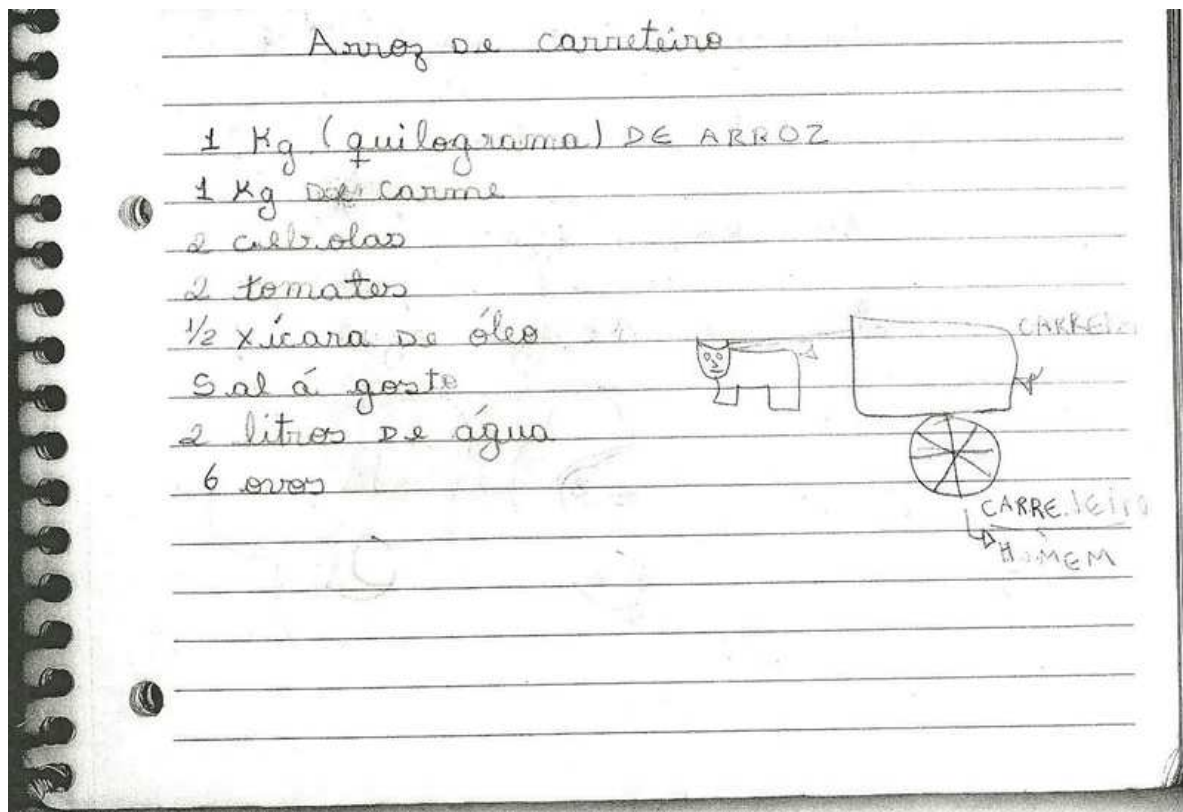 Arroz de carreteiro
1 Kg (quilograma) DE ARROZ
1 Kg de carne
2 cebolas
2 tomates
1/2 xícara de óleo
Sal á gosto
2 litros de água
6 ovos
CARRETEIRO
HOMEM